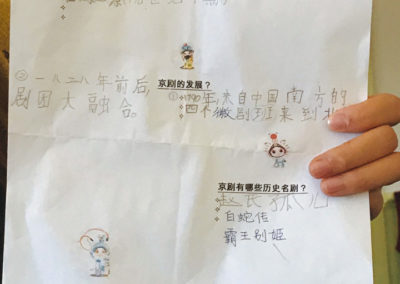 京剧的发展?
①1790年,来自中国南方的
四个徽剧班来到
②一八二八年前后,
剧团大融合。
京剧有哪些历史名剧?
赵氏孤儿
白蛇传
霸王别姬